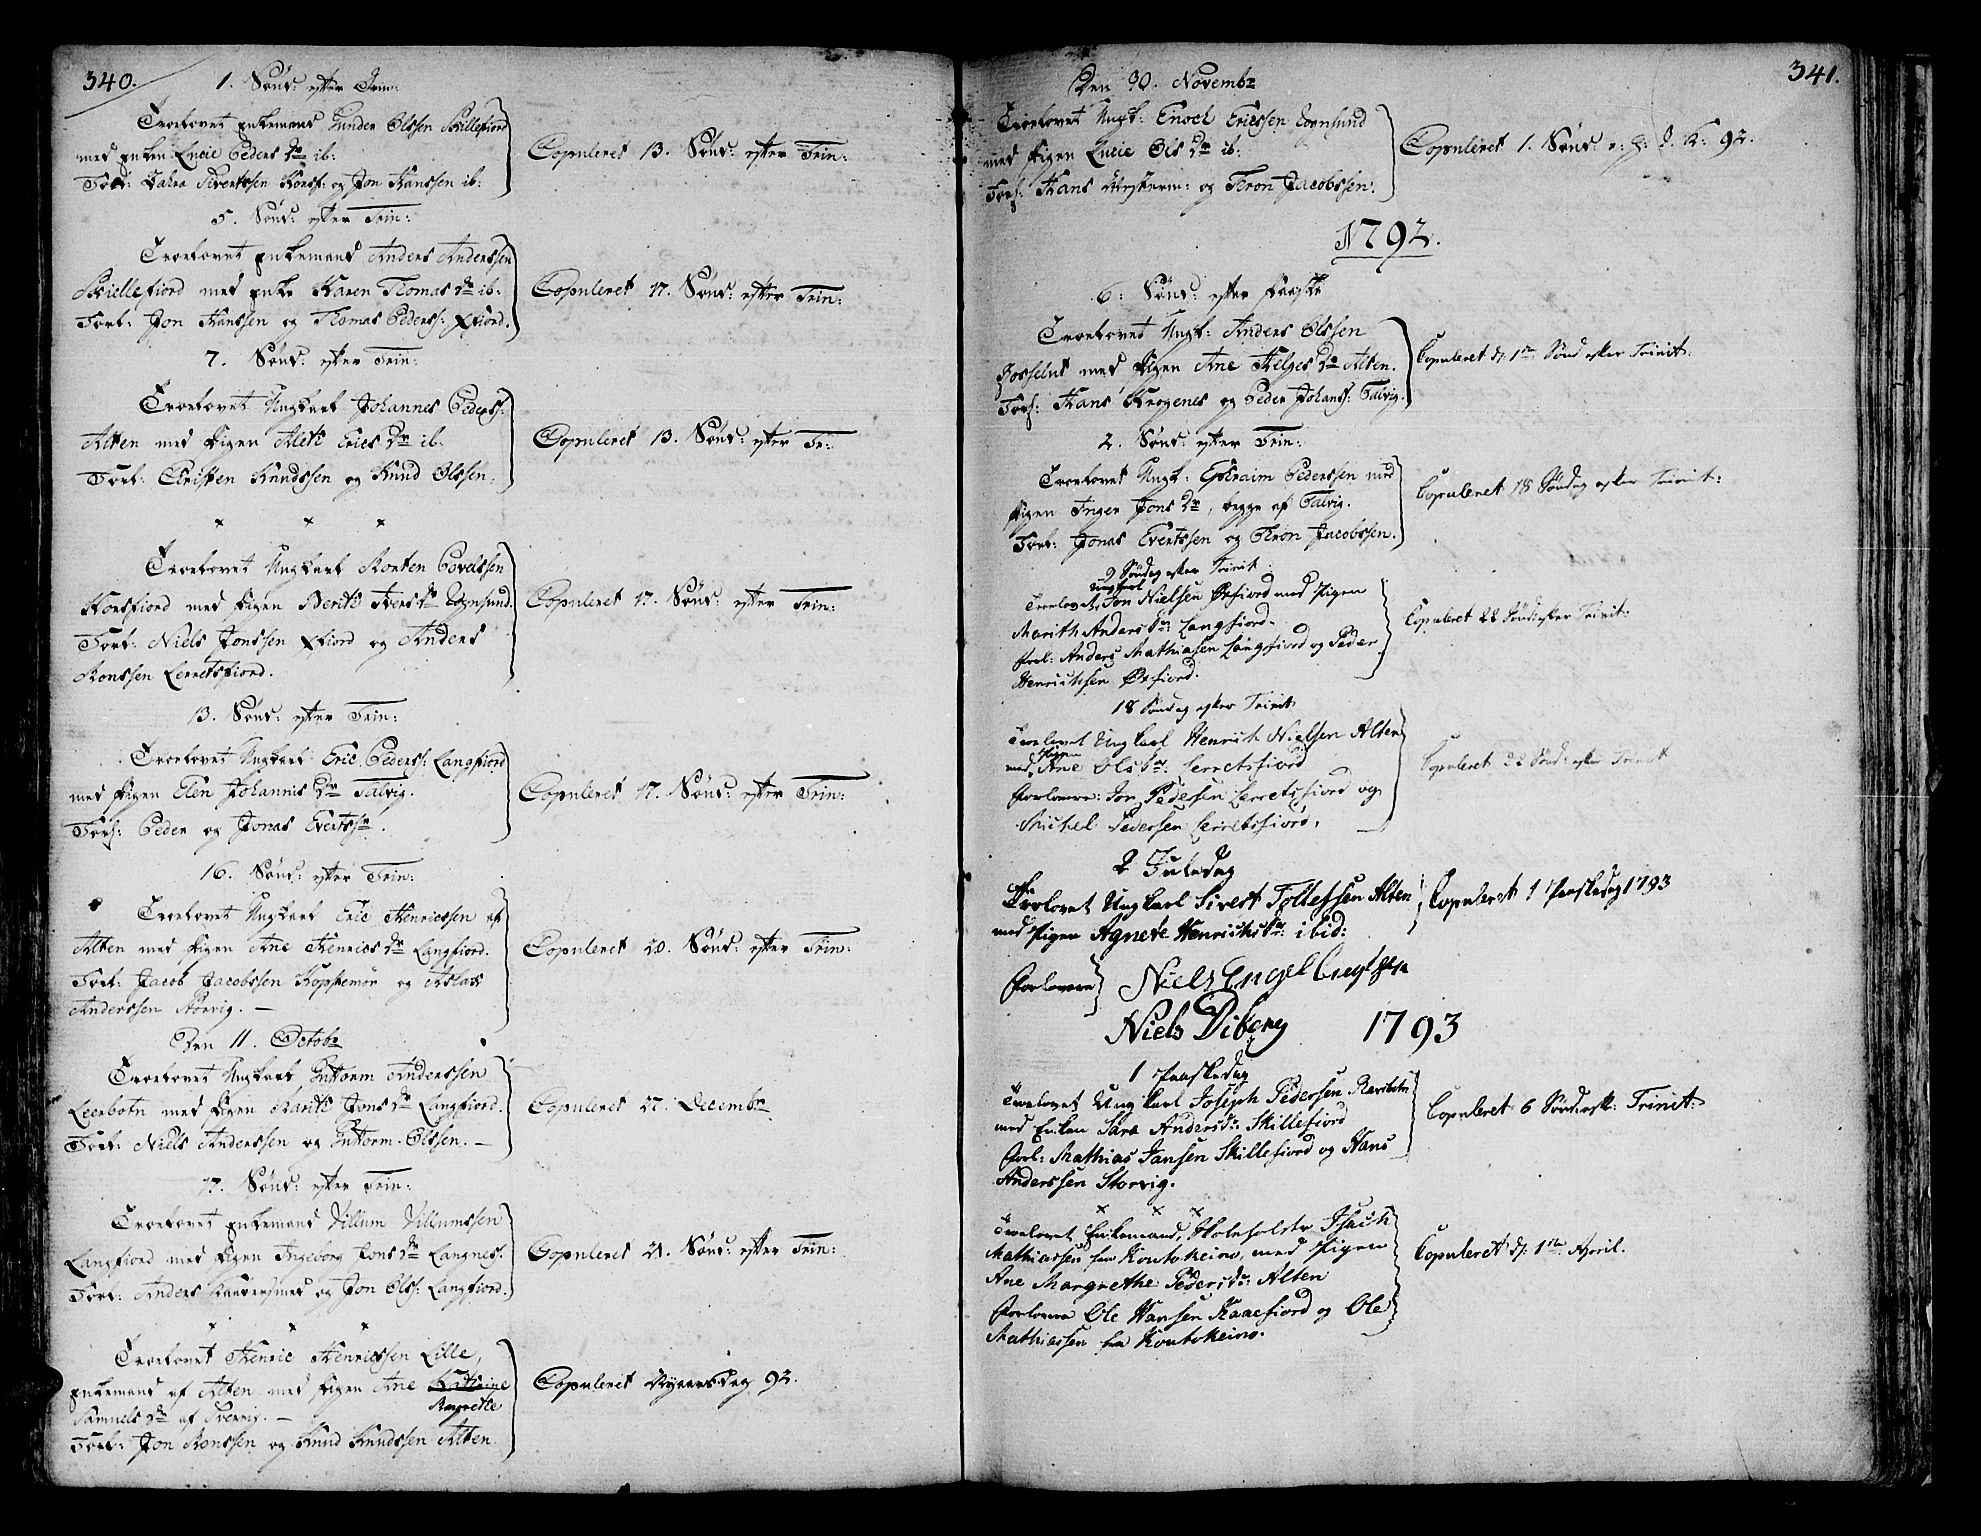 340.
1. Sønd: efter Trin:
Troelovet Enkemand Gunder Olssen Skillefiord
med Enken Lucie Peders Dr ib:
Forl: Zakra Sivertssen Korsf: og Jon Hanssen ib:
Copuleret 13. Sønd: efter Trin:
5. Sønd: efter Trin:
Troelovet Enkemand Anders Anderssen
Skillefiord med Enke Karen Thomas Dr ib:
Forl: Jon Hanssen og Thomas Pederss: Xfiord.
Copuleret 17. Sønd: efter Trin:
7. Sønd: efter Trin:
Troelovet Ungkarl Johannes Pederss:
Alten med Pigen Aleth Erics Dr ib:
Forl: Christen Knudssen og Knud Olssen.
Copuleret 13. Sønd: efter Tr:
x x x
Troelovet Ungkarl Morten Povelssen
Korsfiord med Pigen Berith Ivers Dr Rognsund.
Forl: Niels Jonssen Xfiord og Anders
Monssen Lerretsfiord.
Copuleret 17. Sønd: efter Trin:
13. Sønd: efter Trin:
Troelovet Ungkarl Eric Pederss: Langfiord
med Pigen Elen Johannis Dr Talvig.
Forl: Peder og Jonas Evertssn.
Copuleret 17. Sønd: efter Trin:
16. Sønd: efter Trin:
Troelovet Ungkarl Eric Henricssen af
Alten med Pigen Ane Henrics Dr Langfiord.
Forl: Jacob Jacobssen Koppemør og Aslak
Anderssen Storvig. —
Copuleret 20. Sønd: efter Trin:
Den 11. Octobr
Troelovet Ungkarl Guttorm Anderssen
Leerbotn med Pigen Marith Jons Dr Langfiord.
Forl: Niels Anderssen og Guttorm Olssen. —
Copuleret 27. Decembr
17. Sønd: efter Trin:
Troelovet Enkemand Villum Villumssen
Langfiord med Pigen Ingeborg Jons Dr Langnes:
Forl: Anders og Jon Olss: Langfiord.
Copuleret 21. Sønd: efter Trin:
x x x
Troelovet Henric Henricssen Lille,
Enkemand af Alten med Pigen Ane Kathrine
Margrethe
Samuels Dr af —
Forl: Jon Monssen og Knud Knudssen Alten.
Copuleret Nyaarsdag 92.
341.
Den 30. Novembr
Troelovet Ungk: Enoch Ericssen Rognsund
med Pigen Lucie Ols Dr ib:
Forl: Hans og Thron Jacobssen.
Copuleret 1. Sønd: e: H: 3. K: 92.
1792.
6: Sønd: efter Paaske
Troelovet Ungk: Anders Olssen
Bosselut med Pigen Ane Helges Dr Alten.
Forl: Hans Krogenes og Peder Johanss: Talvig.
Copuleret d. 1te Sønd efter Trinit:
2. Sønd: efter Trin:
Troelovet Ungk: Ephraim Pederssen med
Pigen Inger Jons Dr, begge af Talvig.
Forl: Jonas Evertssen og Thron Jacobssen.
Copuleret 18 Søndag efter Trinit:
9 Søndag efter Trinit:
Ungkarl
Trolovet Jon Nielsen Øxfiord med Pigen
Marith Anders Dr: Langfiord.
Forl: Anders Mathiasen Langfiord og Peder
Henrichsen Øxfiord.
Copuleret 22 Sønd: efter Trinit:
18 Søndag efter Trinit:
Trolovet Ungkarl Henrich Nielsen Alten
Pigen
med Ane Ols Dr: Lerretsfiord
Forlovere: Jon Pedersen Lerretsfiord og
Michel Pedersen Lerretsfiord.
Copuleret 22 Sønd: efter Trinit
2 Juledag
Trolovet Ungkarl Sivert Tollefsen Alten
med Pigen Agnete Henrichs Dr: ibid:
Copuleret 1 Paaskedag 1793
Forlovere Niels Engelbrigtsen
Niels Diberg
1793
1 Paaskedag
Trolovet Ungkarl Joseph Pedersen Rafsbotn
med Enken Sara Andersdr: Skillefiord
Forl: Mathias Jansen Skillefiord og Hans
Anderssen Storvig.
Copuleret 6 Sønd: eft: Trinit:
x x x
Trolovet Enkemand, Isach
Mathiassen fra Koutokeino, med Pigen
Ane Margrethe Pedersdr: Alten
Forlovere Ole Hansen Kaaefiord og Ole
Mathiassen fra Koutokeino.
Copuleret d. 1te April.